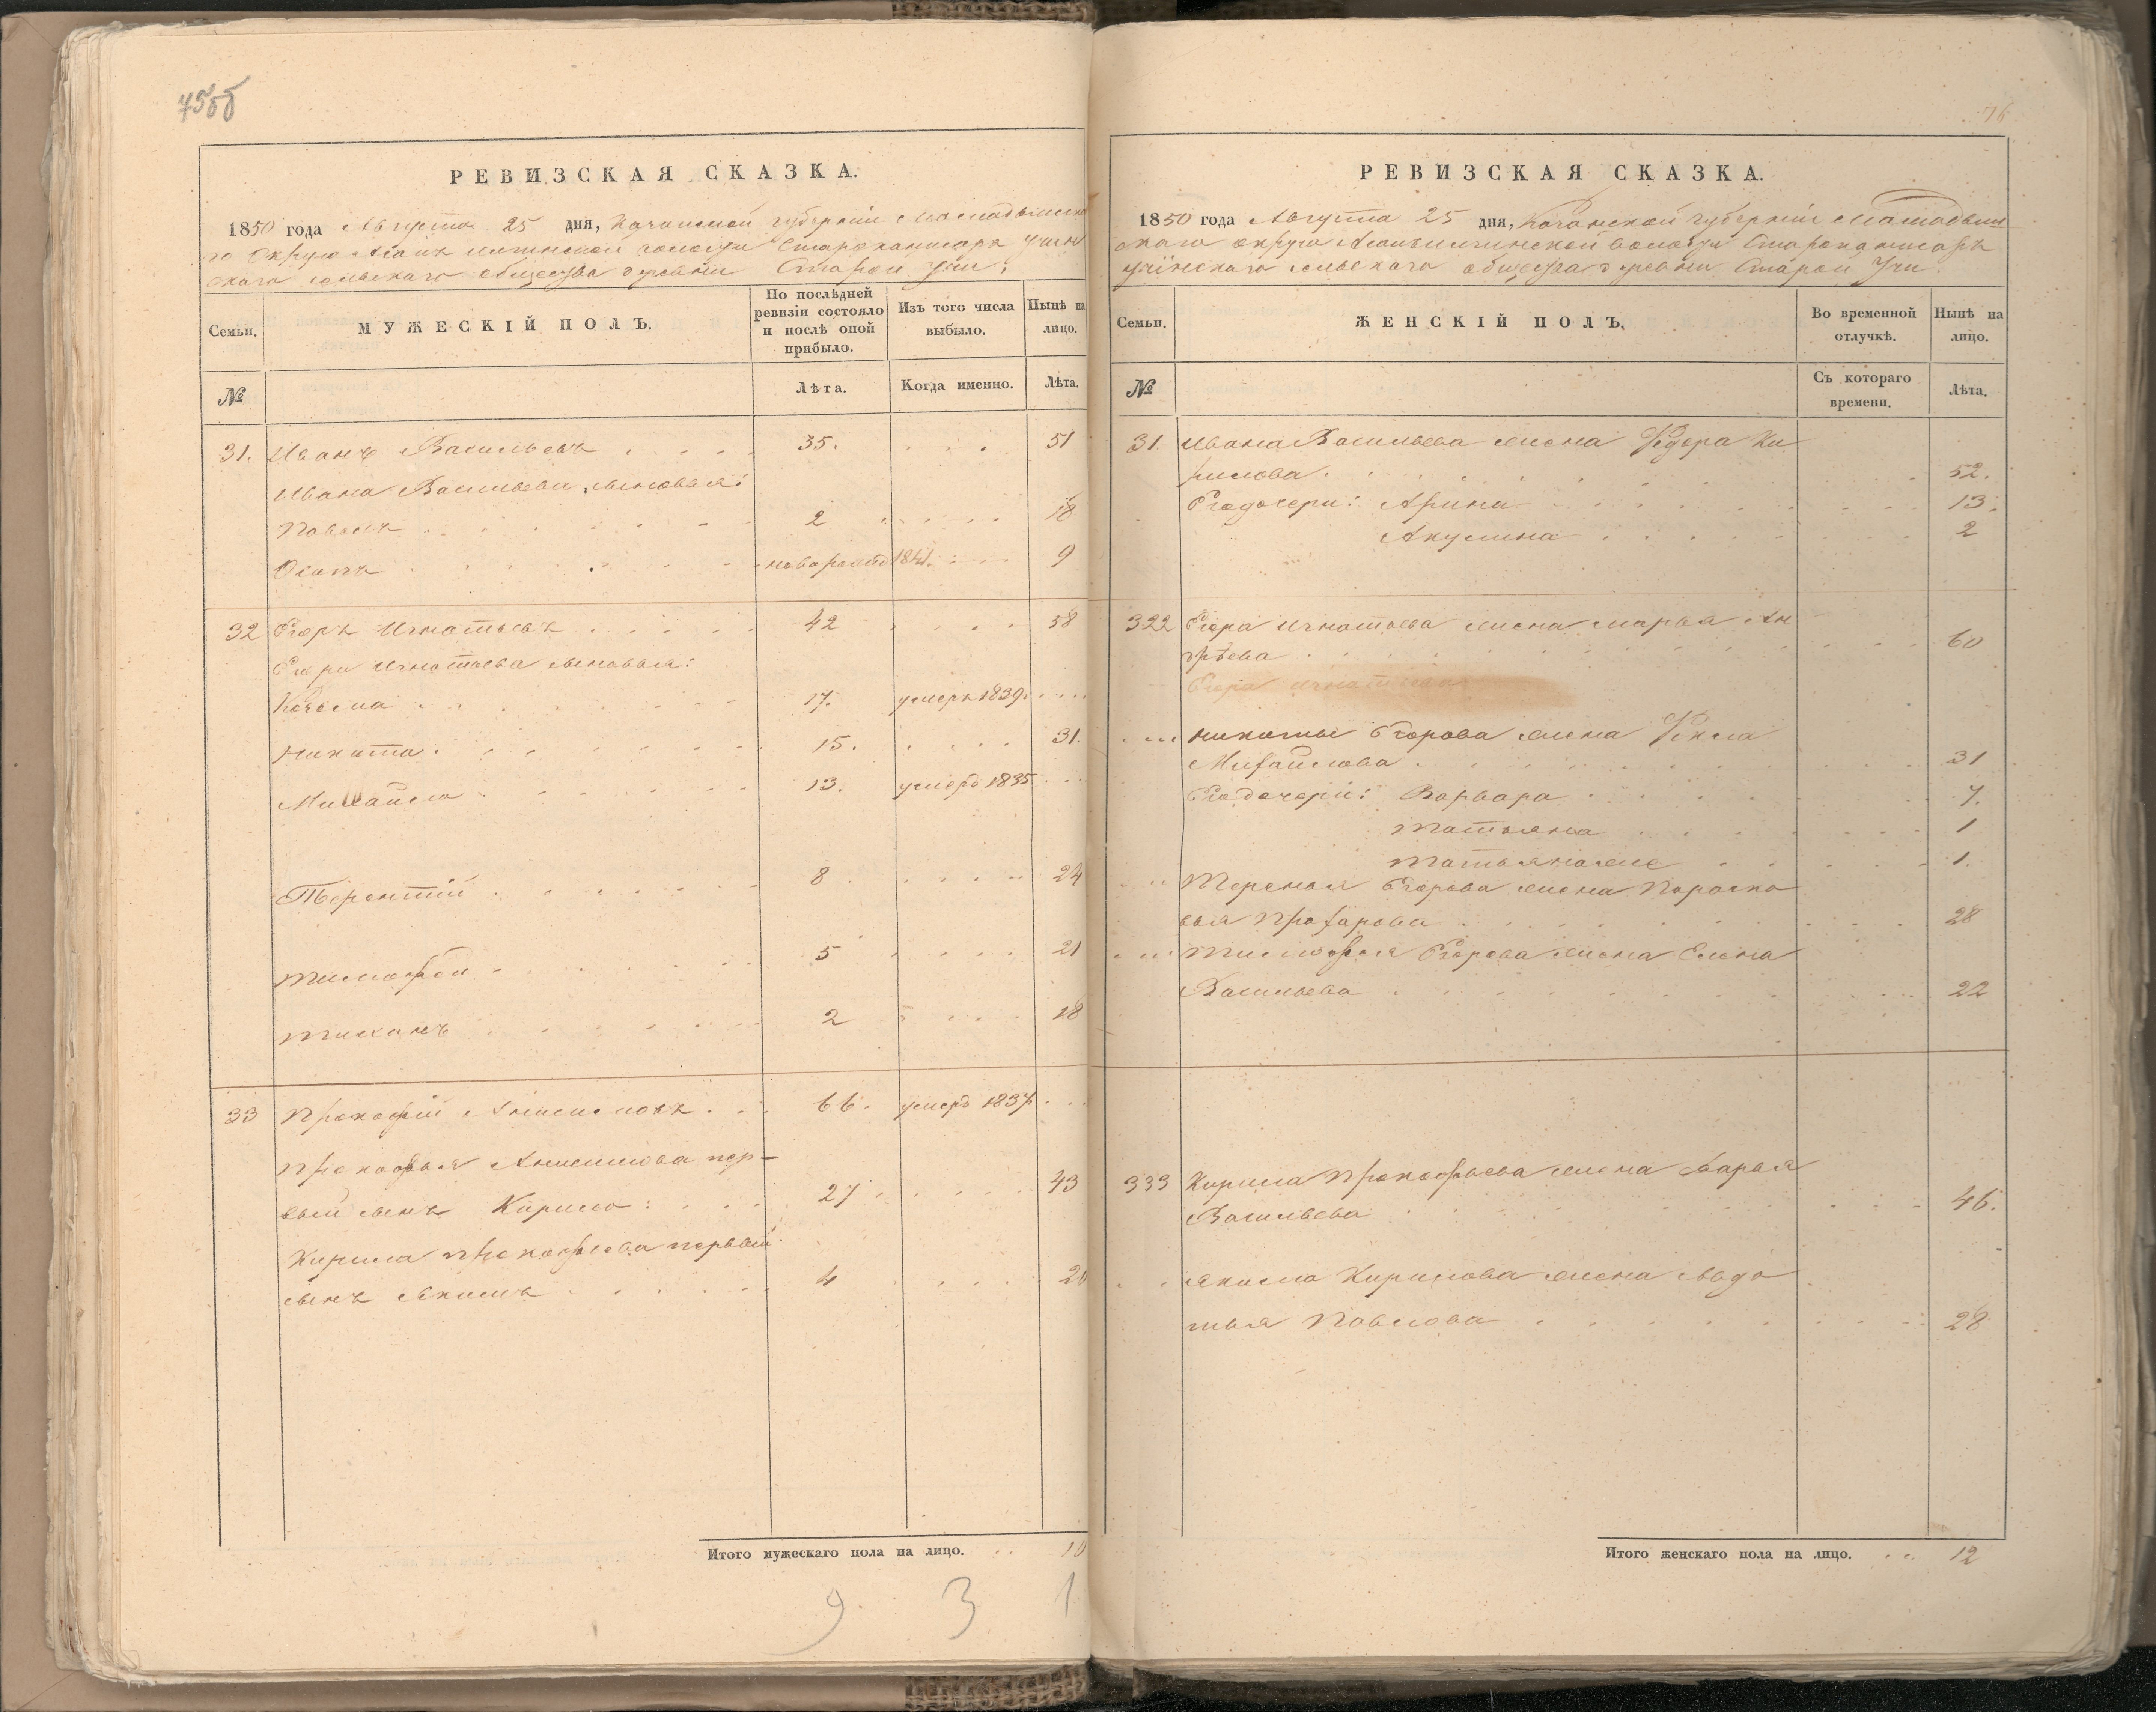 75об
РЕВИЗСКАЯ СКАЗКА.
1850 года Августа 25 дня, Казанской губерніи Мамадышска
го округа волости
скаго сельскаго общества деревни Старой Учи.
Семьи.
МУЖЕСКІЙ ПОЛЪ.
По послѣдней ревизіи состояло и послѣ оной прибыло.
Изъ того числа выбыло.
Нынѣ на лицо.
№
Лѣта.
Когда именно.
Лѣта.
31. Иванъ Васильевъ 35. 51
Ивана Васильева сыновья:
Павелъ 2 18
Осипъ новорожд 1841. 9
32 Егоръ Игнатьевъ 42 58
Егора Игнатьева сыновья:
Козьма 17. умеръ 1839.
Никита 15. 31.
Михайло 13. умеръ 1835
Терентій 8 24
Тимофей 5 21
Тихонъ 2 18
33 Прокофій Анисимовъ 66. умеръ 1837.
Прокофья Анисимова пер-
вый сынъ Кирило: 27 43
Кирила Прокофьева первый
сынъ Якимъ 4 20
Итого мужескаго пола на лицо. 10
9 3 1
76
РЕВИЗСКАЯ СКАЗКА.
1850 года Августа 25 дня, Казанской губерніи Мамадыш
скаго округа волости
Учинскаго сельскаго общества деревни Старой Учи.
Семьи.
ЖЕНСКІЙ ПОЛЪ.
Во временной отлучкѣ.
Нынѣ на лицо.
№
Съ котораго времени.
Лѣта.
31. Ивана Васильева жена Федора Ки
рилова 52.
Его дочери: Арина 13.
Акулина 2
322 Егора Игнатьева жена Марья Ан
дрѣева 60
Егора Игнатьева
Никиты Егорова жена Фекла
Михайлова 31
Его дочери: Варвара 7.
Татьяна 1
Татьяна же 1.
Терентья Егорова жена Параско
вья Прохарова 28
Тимофея Егорова жена Елена
Васильева 22
333 Кирила Прокофьева жена Дарья
Васильева 46.
Якима Кирилова жена Авдо
тья Павлова 28
Итого женскаго пола на лицо. 12